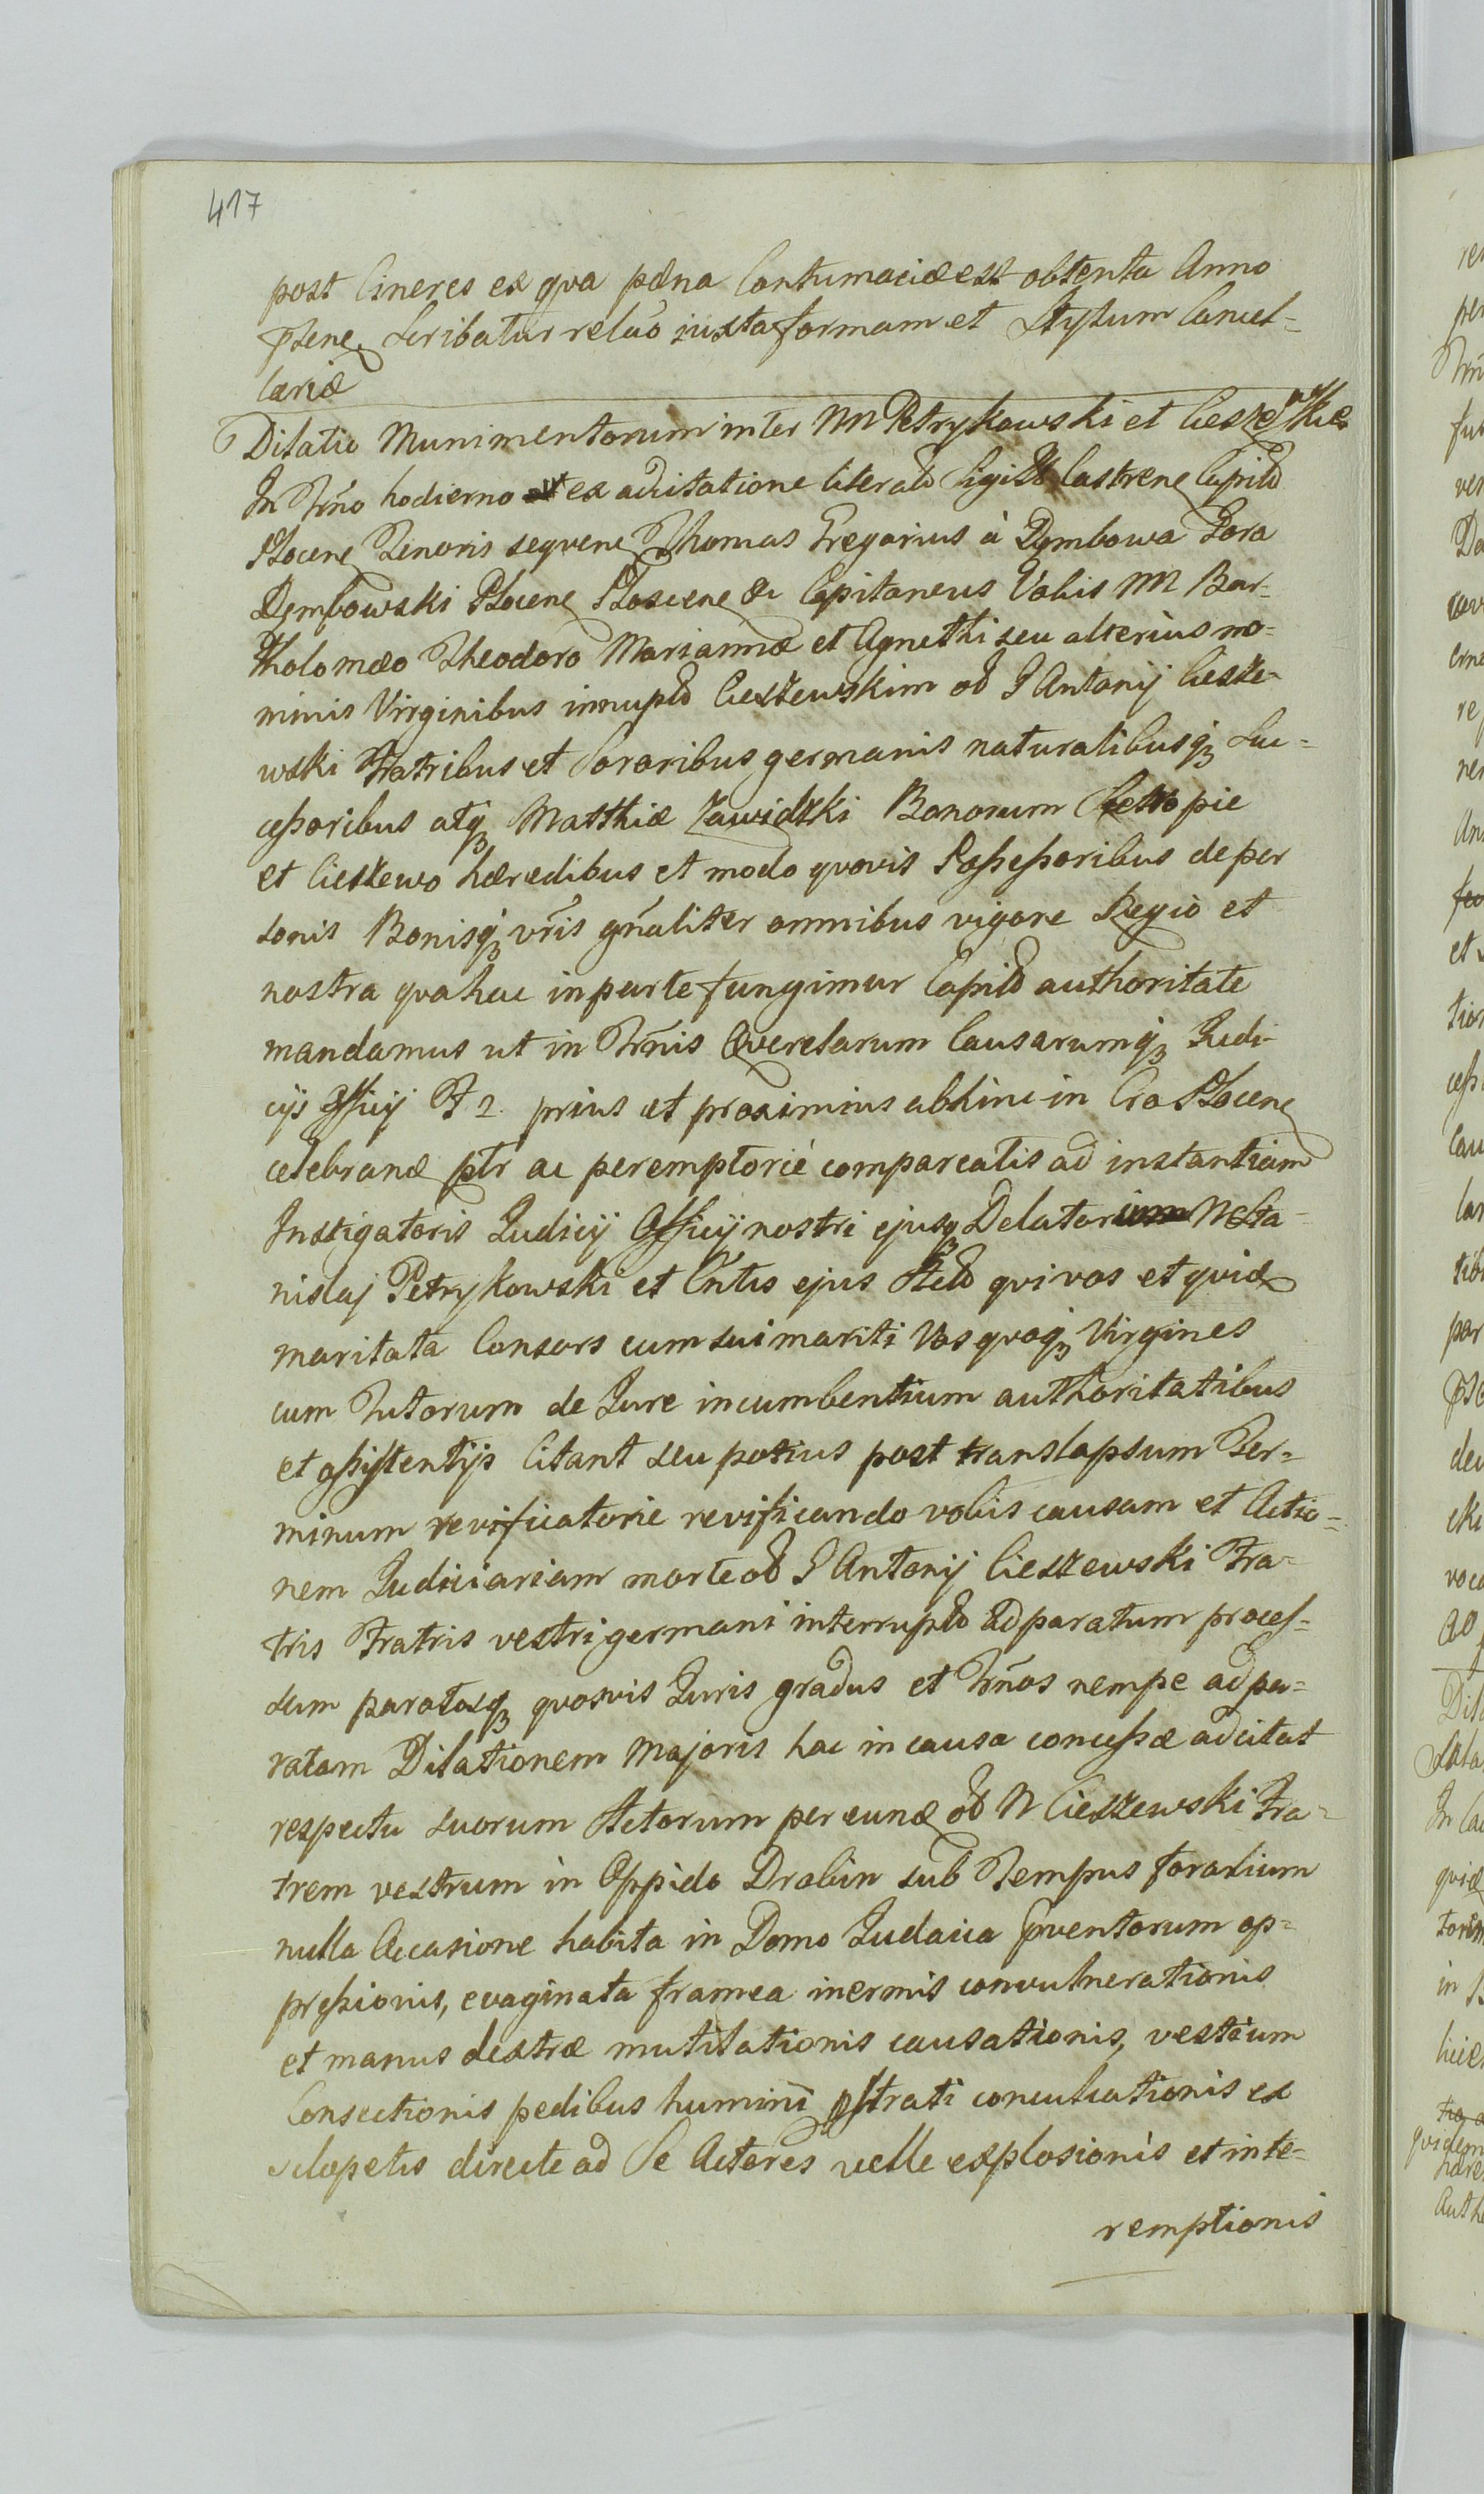 417
post Cineres ex qva pæna Contumaciæ est obtenta Anno
pſene Scribatur relão iuxta formam et Stylum Cancel=
lariæ
Dilatio Munimentorum inter NN Petrykowski et Cieszewskie
In Trno hodierno ex aditatione literali Sigillo Castrene Capitli
Plocene Tenoris seqvene Thomas Gregorius à Dymbowa Gora
Dymbowski Plocene Plocene & Capitaneus Vobis NN Bar-
tholomæo Theodoro Mariannæ et Agnethi seu alterius no=
minis Virginibus innuptis Cieszewskim ol G Antonij Ciesze-
wski Fratribus et Sororibus germanis naturalibusq3 Suc=
ceſsoribus atq3 Matthiæ Zawidzki Bonorum
et Cieszewo hæredibus et modo qvovis Poſseſsoribus de per
sonis Bonisq3 vr̃is gñaliter omnibus vigore Regiô et
nostra qva hac in parte fungimur Capitli authoritate
mandamus ut in Trñis Qverelarum Causarumq3 Judi-
cijs Officij F 2. prius et proximius abhinc in Cro Plocene
celebranæ ptr ac peremptorie compareatis ad instantiam
Instigatoris Judicij Officij nostri ejusq3 Delatoris N Sta=
nislaj Petrykowski et Cntis ejus qvi vos et qvidæ
maritata Consors cum sui mariti Vos qvoq3 Virgines
cum Tutorum de Jure incumbentium authoritatibus
et aſsiſtentijs Citant seu potius post translapsum Ter=
minum revificatorie revificando vobis causam et Actio=
nem Judiciariam morte ol G Antonij Cieszewski Fra=
tris Fratris vestri germani interruptis ad paratum proceſ=
sum paratosq3 qvosvis Juris gradus et Trños nempe ad pa=
ratam Dilationem Majoris hac in causa conceſsæ adcitat
respectu suorum Actorum per eunæ ol N Cieszewski Fra=
trem vestrum in Oppido Drobin sub Tempus foralium
nulla Occasione habita in Domo Judaica pventorum op=
preſsionis, evaginata framea inermis convulnerationis
et manus dextræ mutilationis causationis, vestium
Consectionis pedibus humini pſtrati conculcationis ex
sclopetis directe ad Se Actores velle explosionis et inte=
remptionis